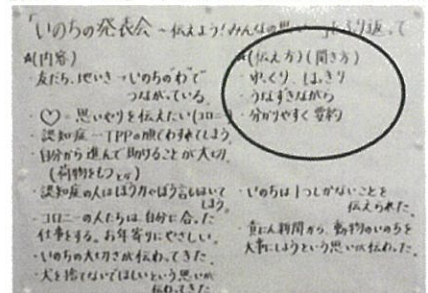 「いのちの発表会 〜伝えよう！みんなの思い〜」ふり返って
☆(内容)
・友だち、地いき→いのちの"わ"で
つながっている。
・♡=思いやりを伝えたい(コロニー)
・認知症―TPPの順でわすれてしまう。
・自分から進んで助けることが大切。
(荷物をもつとか)
・認知症の人は
しまう。
・コロニーの人たちは、自分に合った
仕事をする。お年寄りにやさしい。
・いのちの大切さが伝わってきた。
・犬を捨てないでほしいという思いが
伝わってきた。
☆(伝え方)(聞き方)
・ゆっくり、はっきり
・うなずきながら
・分かりやすく要約
・いのちは1つしかないことを
伝えられた。
新聞から、動物のいのちを
大事にしようという思いが伝わった。